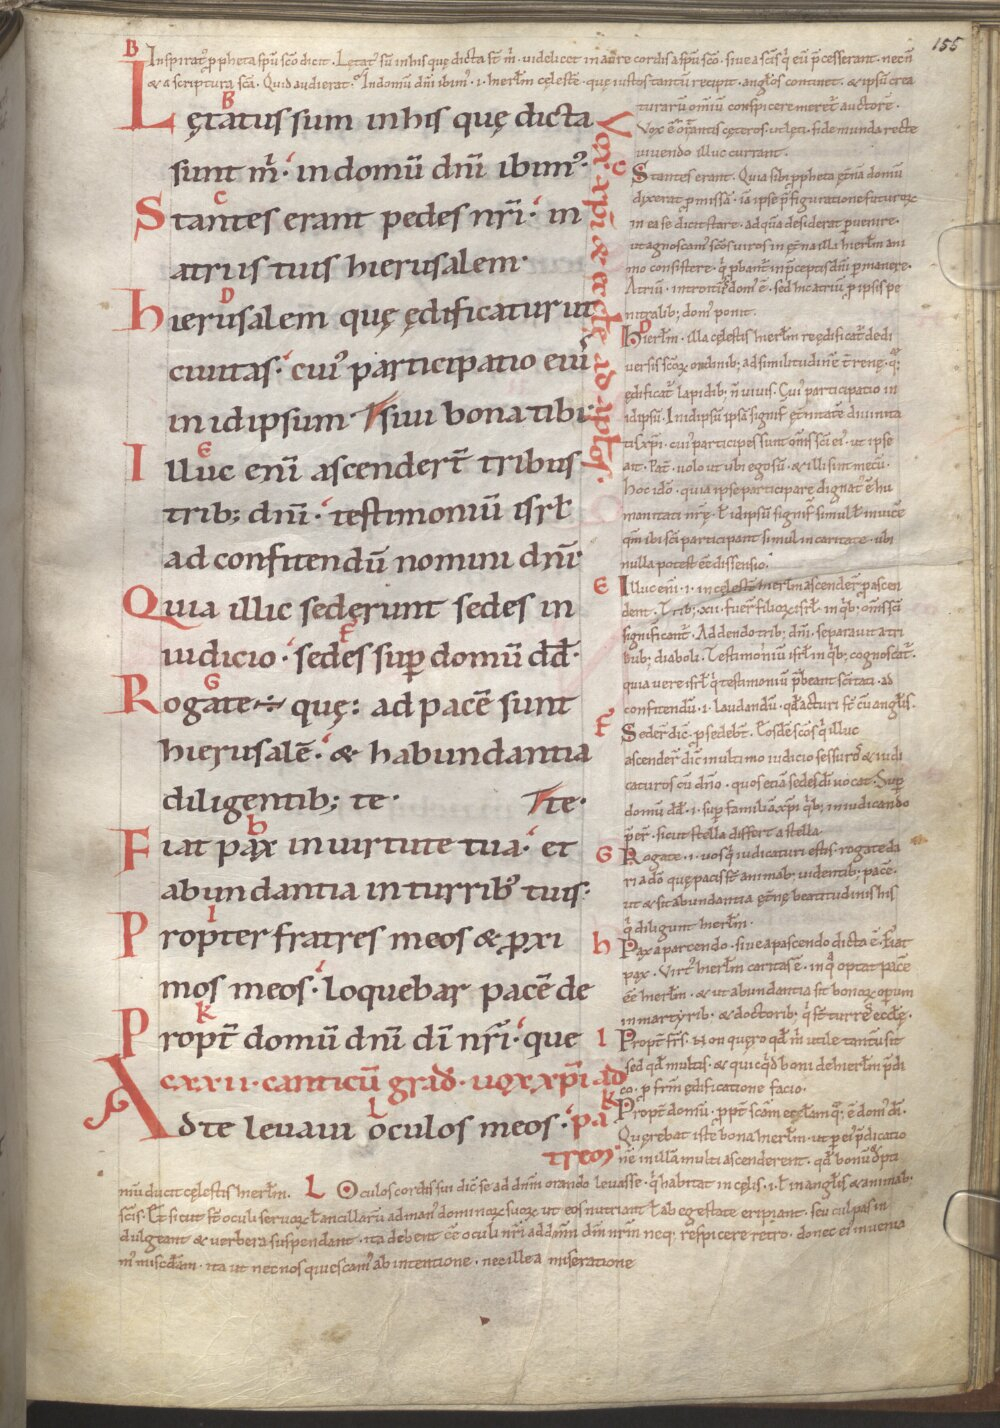 155
B Inspirat᷒ ꝓpheta spū scō dicit. Lętat᷒ sū inhis quę dicta st̄ m̄. videlicet in aure cordis a spū scō. siue a scīs q̄ eū p̄cesserant. nec n̄
& a scriptura scā. Quid audierat? Indomū dn̄i ibim᷒. i. hierl̄m cęlestē. quę iustos tantū recipit. angl̄os continet. & ipsū crea
turarū om̄iū conspicere meret᷒ auctorē.
Vox ē orantis cęteros. ut lęti. fide munda recte
viuendo illuc currant.
B
Lętatus sum inhis quę dicta
sunt m̄. in domū dn̄i ibim᷒.
C
Stantes erant pedes nr̄i. in
atriis tuis hierusalem.
D
Hierusalem quę ędificatur ut
ciuitas. cui᷒ participatio eiū
in idipsum. siui bona tibi.
E
Illuc eni᷒ ascendert̄ tribus
trib; dn̄i. testimoniū isrł
ad confitendū nomini dn̄i
Quia illic sederunt sedes in
F
iudicio. sedes suꝑ domū dd̄.
G
Rogate ÷ quę: ad pacē sunt
hierusalē. & habundantia
diligentib; te. te.
h
Fiat pax in uirtute tua. et
abundantia in turrib᷒ tuis:
I
Propter fratres meos & ꝓxi
mos meos. loquebar pacē de
K
Propt̄ domū dn̄i dī nr̄i. que
CXXII. canticū grad̄. uox xp̄i ad
L
Ad te leuaui oculos meos. pa
trem
Vox xp̄i & ęcclę ad aptos.
C Stantes erant. Quia sibi ꝓpheta ęt̄nā domū
dixerat ꝓmissā. iā ipse p̄figuratione futuroꝝ
in ea se dicit stare. ad quā desiderat ꝑuenire.
ut agnoscam᷒ scōs uiros in ęt̄na illi hierl̄m ani
mo consistere. q̄ ꝓbant᷒ in p̄ceptis dn̄i ꝑmanere.
Atriū. introit᷒ dom᷒ ē. sed hic atriū ꝓ ipsis pe
nitralib; dom᷒ ponit.
D Hierl̄m. illa cęlestis hierl̄m reędificat᷒ de di
uersis scōꝝ ordinib; ad similitudinē t̄renę. q̄;
ędificat᷒ lapidib; n̄ uiuis. Cui᷒ participatio in
idipsū. In idipsū ipsā signif̄ ęt̄nitatē diuinita
tis xp̄i. cui᷒ participes sunt om̄s scī ei᷒. ut ipse
ait. Pat̄. uolo ut ubi ego sū. & illi sint mecū.
hoc idō. quia ipse participare dignat᷒ ē hu
manitati nr̄ę. ł idipsū signif̄ simul ł inuicē
qm̄ ibi scī participant simul in caritate. ubi
nulla potest eē dissensio.
E Illuc eni᷒. i. in cęlestē hierl̄m ascender̄ ꝓ ascen
dent. Trib; xii. fuer̄ filioꝝ isrł. in q̄b; om̄s scī
significant᷒. Addendo trib; dn̄i. separauit a tri
bub; diaboli. Testimoniū isrł in q̄b; cognoscat᷒.
quia uere isrł q̄ testimoniū p̄beant sc̄itati. ad
confitendū. i. laudandū. qd̄ acturi st̄ cū angl̄is.
F Seder̄ dic̄. ꝓ sedebt̄. Eosdē scōs q̄ illuc
ascender̄ dic̄ in ultimo iudicio sessuros & iudi
caturos cū dn̄o. quos etiā sedes dī uocat. Suꝑ
domū dd̄. i. suꝑ familiā xp̄i q̄b; in iudicando
p̄er̄. sicut stella differt a stella
G Rogate. i. uos q̄ iudicaturi estis. rogate da
ri a dō quę pacis st̄ animab; uidentib; pacē.
ut & sit abundantia ęt̄nę beatitudinis his
q̄ diligunt hierl̄m.
h Pax a parcendo. siue a pascendo dicta ē. Fiat
pax. Virt᷒ hierl̄m caritas ē. in q̄ optat pacē
eē hierl̄m. & ut abundantia sit bonoꝝ oꝑum
in martyrib. & doctorib; q̄ st̄ turres ęcclę.
I Propt̄ frs̄. Non quęro qd̄ m̄ utile tantū sit
sed qd̄ multis. & quicq̄d boni de hierl̄m p̄di
co. ꝓ frm̄ ędificatione facio.
K Propt̄ domū. ꝓpt̄ scām ęcclam q̄; ē dom᷒ dī.
Quęrebat iste bona hierl̄m. ut ꝑ ei᷒ p̄dicatio
nē in illam multi ascenderent. qd̄ bonū
niū ducit cęlestis hierl̄m. L Oculos cordis sui dic̄ se ad dn̄m orando leuasse. q̄ habitat in cęlis. i. ł in angl̄is & animab;
scīs. Et sicut st̄ oculi seruoꝝ ł ancillarū ad man᷒ dominoꝝ suoꝝ ut eos nutriant ł ab egestate eripiant. seu culpas in
dulgeant & uerbera suspendant. ita debent eē oculi nr̄i ad dn̄m dm̄ nr̄m neq; respicere retro. donec ei᷒ inuenia
m᷒ miscd̄iam. ita ut nec nos quiescam᷒ ab intentione. nec ille a miseratione